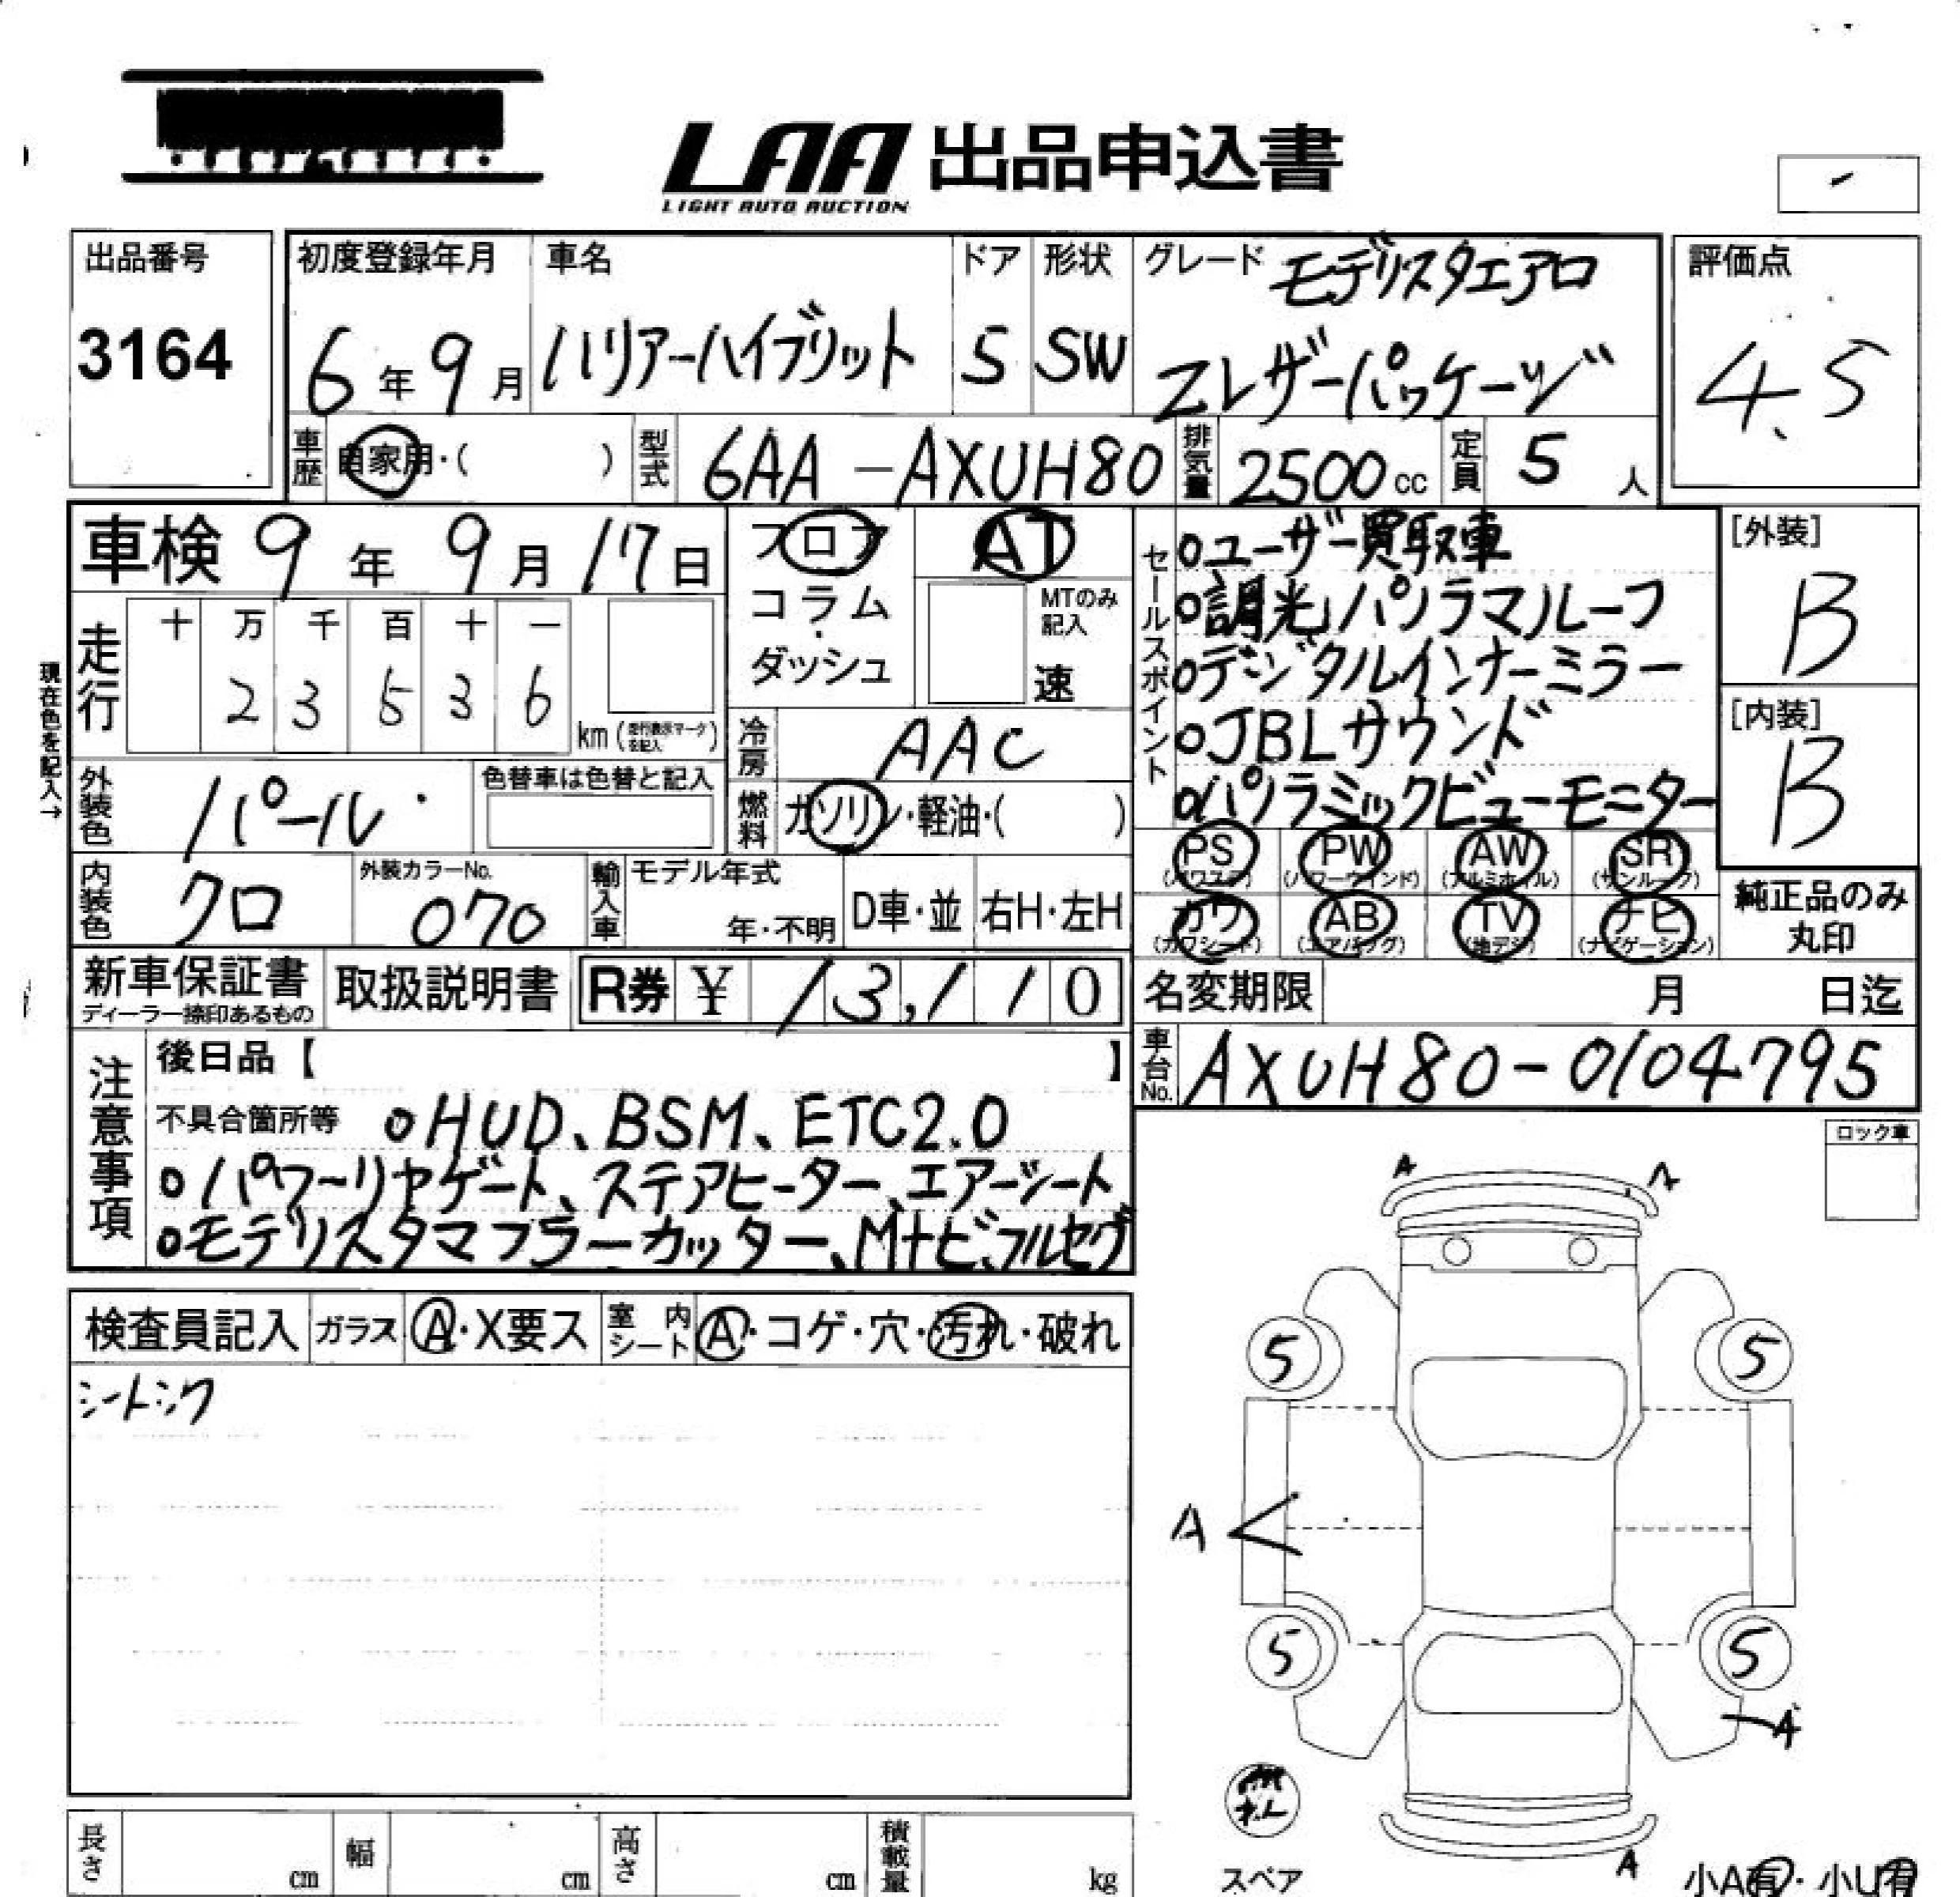 LAA 出品申込書
LIGHT AUTO AUCTION
出品番号
3164
初度登録年月
6年9月
車名
ハリアーハイブリット
ドア
5
形状
SW
グレード モデリスタエアロ
Zレザーパッケージ
評価点
4.5
車歴 自家用・( )
型式 6AA-AXUH80
排気量 2500cc
定員 5人
車検 9年9月17日
フロア
コラム
・
ダッシュ
AT
MTのみ
記入
速
現在色を記入→
走行
十 万 千 百 十 一
2 3 5 3 6
km(走行表示マークを記入)
冷房 AAC
燃料 ガソリン・軽油・( )
外装色 パール
色替車は色替と記入
内装色 クロ
外装カラーNo.
070
輸入車
モデル年式
年・不明
D車・並
右H・左H
セールスポイント
○ユーザー買取車
○調光パノラマルーフ
○デジタルインナーミラー
○JBLサウンド
○パノラミックビューモニター
[外装]
B
[内装]
B
PS (パワステ)
PW (パワーウインド)
AW (アルミホイル)
SR (サンルーフ)
カワ (カワシート)
AB (エアバッグ)
TV (地デジ)
ナビ (ナビゲーション)
純正品のみ
丸印
新車保証書
ディーラー捺印あるもの
取扱説明書
R券 ¥ 13,110
名変期限 月 日迄
車台No. AXUH80-0104795
注意事項
後日品【 】
不具合箇所等 ○HUD、BSM、ETC2.0
○パワーリヤゲート、ステアヒーター、エアーシート
○モデリスタマフラーカッター、Mナビ、フルセグ
ロック車
検査員記入
ガラス A・X要ス
室内シート A・コゲ・穴・汚れ・破れ
シートシワ
A A
5 5
A
5 5
A
A
スペア
小A有・小U有
長さ cm
幅 cm
高さ cm
積載量 kg